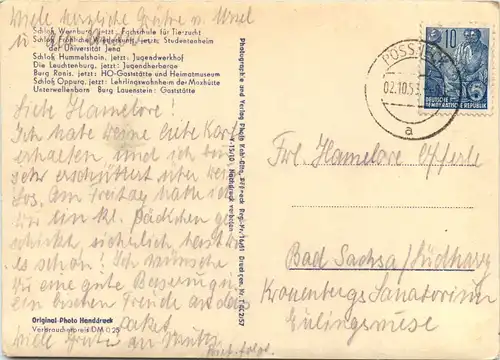 Viele herzliche Grüße u.
Schloß Wernburg jetzt: Fachschule für Tierzucht
Schloß Fröhliche Wiederkunft, jetzt: Studentenheim
der Universität Jena
Schloß Hummelshain, jetzt: Jugendwerkhof
Die Leuchtenburg, jetzt: Jugendherberge
Burg Ranis, jetzt: HO-Gaststätte und Heimatmuseum
Schloß Oppurg, jetzt: Lehrlingswohnheim der Maxhütte
Unterwellenborn Burg Lauenstein: Gaststätte
Liebe Hannelore!
Ich habe Deine liebe Karte
erhalten und ich bin
sehr erschüttert über
Los. Am Freitag habe ich
Dir ein kl. Päckchen ge-
schickt, sicherlich hast Du
es schon! Ich wünsche
Dir eine gute Besserung,
ein bisschen Freude an dem
Paket
Viele Grüße an Mutti
Original-Photo Handdruck
Verbraucherpreis DM 0,25
Photographie und Verlag Photo
Nachdruck verboten
10
DEUTSCHE
DEMOKRATISCHE REPUBLIK
02.10.53
a
Frl. Hannelore
Bad Sachsa / Südharz
Kronenbergs Sanatorium
Eulingswiese